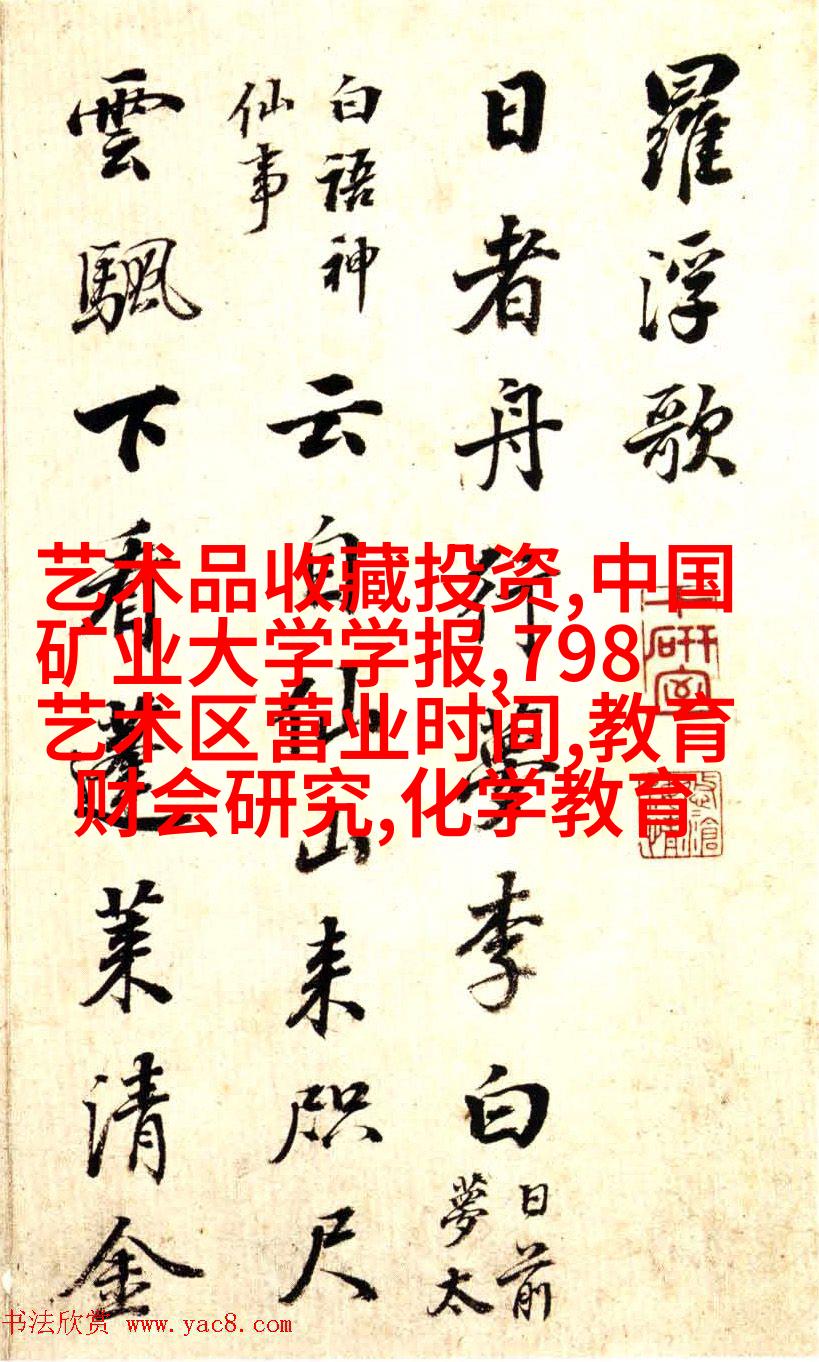 羅浮歌
日者舟行夢李白
日前
夢太
白語神
仙事
云自仙山来咫尺
雲颿下看蓬莱清金
艺术品收藏投资,中国
矿业大学学报,798
艺术区营业时间,教育
财会研究,化学教育
书法欣赏 www.yac8.com